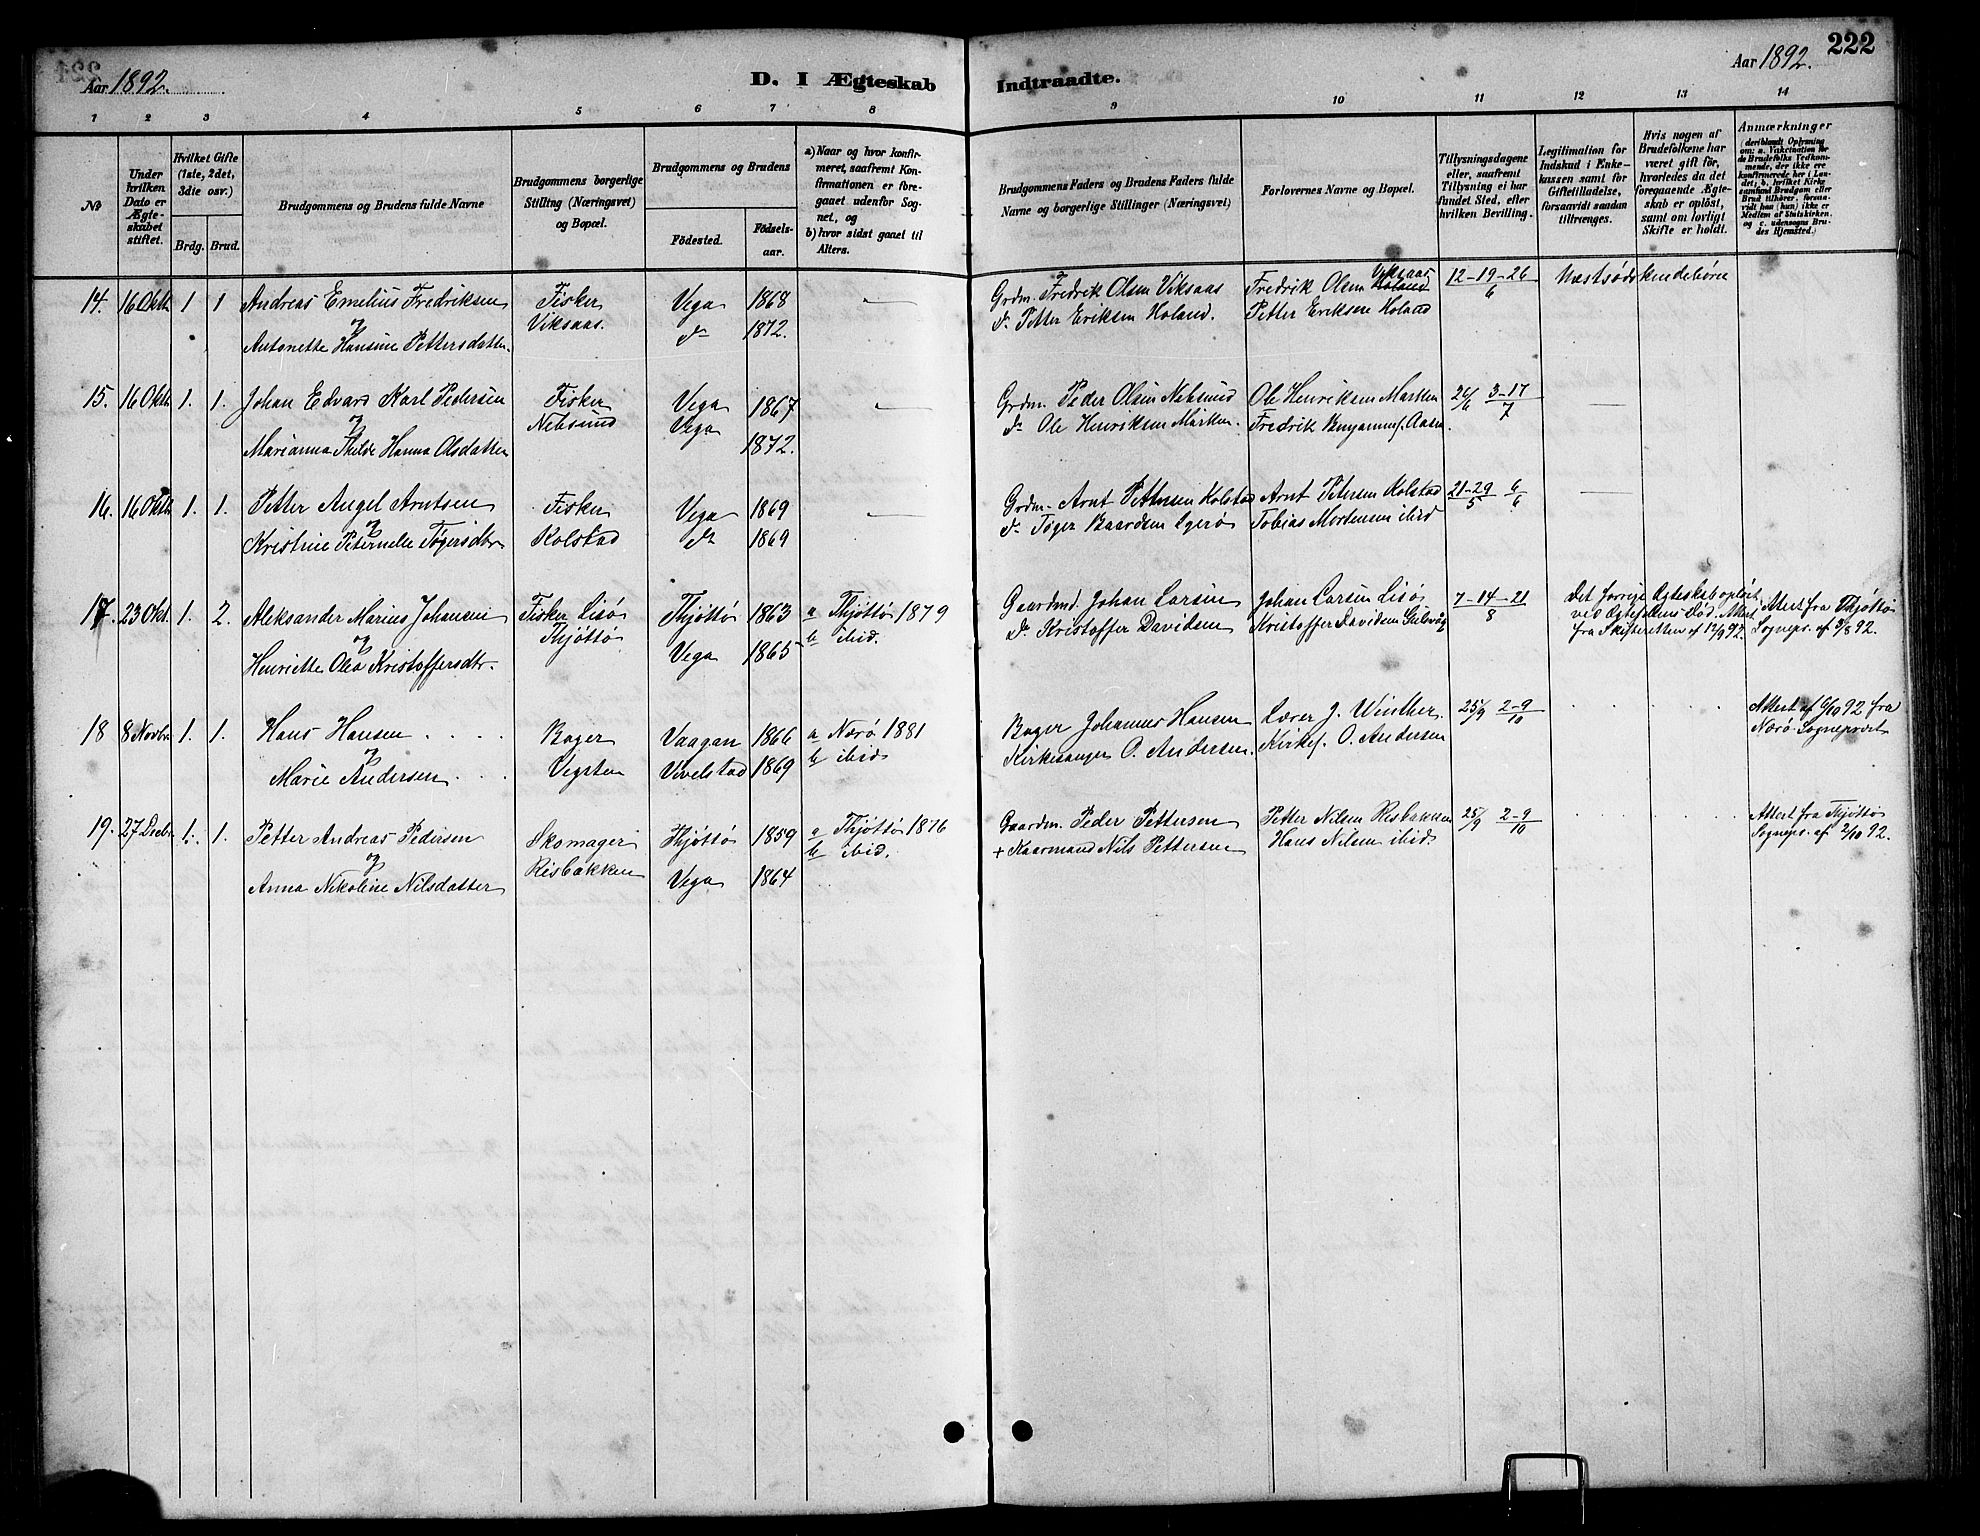 222
Aar 1892.
D. I Ægteskab Indtraadte.
Aar 1892.
1 2 3 4 5 6 7 8 9 10 11 12 13 14
№
Under hvilken Dato er Ægteskabet stiftet.
Hvilket Gifte (1ste, 2det, 3die osv.)
Brdg. Brud.
Brudgommens og Brudens fulde Navne
Brudgommens borgerlige Stilling (Næringsvei) og Bopæl.
Brudgommens og Brudens
Fødested.
Fødselsaar.
a) Naar og hvor konfirmeret, saafremt Konfirmationen er foregaaet udenfor Sognet, og
b) hvor sidst gaaet til Alters.
Brudgommens Faders og Brudens Faders fulde Navne og borgerlige Stillinger (Næringsvei)
Forlovernes Navne og Bopæl.
Tillysningsdagene eller, saafremt Tillysning ei har fundet Sted, efter hvilken Bevilling.
Legitimation for Indskud i Enkekassen samt for Giftetilladelse, forsaavidt saadan tiltrænges.
Hvis nogen af Brudefolkene har været gift før, hvorledes da det foregaaende Ægteskab er opløst, samt om lovligt Skifte er holdt.
Anmærkninger (deriblandt Oplysning om: a. Vakcination for de Brudefolks Vedkommende, der ikke ere konfirmerede her i Landet; b. hvilket Kirkesamfund Brudgom eller Brud tilhører, forsaavidt han (hun) ikke er Medlem af Statskirken, og c. udensogns Brudes Hjemsted.)
14. 16 Oktb 1 1 Andreas Emelius Fredriksen Fisker Vega 1868 — Grdm. Fredrik Olsen Viksaas Fredrik Olsen Viksaas 12-19-26/6 Næstsødskendebörn
og Viksaas.
Antonette Hansine Pettersdatter. do 1872. do Petter Eriksen Holand. Petter Eriksen Holand
15. 16 Oktb. 1. 1. Johan Edvard Karl Pedersen Fisker Vega 1867 — Grdm. Peder Olsen Nebsund Ole Henriksen Marken 26/6 3-17/7 —
og Nebsund
Marianna Thilde Hanna Olsdatter Vega 1872. do Ole Henriksen Marken. Fredrik Benjaminsen Aasen.
16. 16 Oktb 1. 1. Petter Angel Arntsen Fisker Vega 1869 — Grdm. Arnt Pettersen Kolstad Arnt Petersen Kolstad 21-29/5 6/6 —
og
Kristine Peternelle Tøgersdtr. Kolstad do 1869 do Tøger Baardsen Igerø Tobias Mortensen ibid
17. 23 Okt. 1. 2. Aleksander Marius Johansen Fisker Lisø Thjøttø 1863 a Thjøttø 1879 Gaardmd. Johan Larsen Johan Larsen Lisø 7-14-21/8 Det forrige Egteskab opløst ved Egtefællens Død. Attest fra Skifteretten af 12/9 92. Attest fra Thjøttø Sognepr. af 3/8 92.
og Thjøttø b ibid.
Henriette Olea Kristoffersdtr. Vega 1865 do Kristoffer Davidsen Kristoffer Davidsen Gulsvåg
18 8 Novbr 1. 1. Hans Hansen Bager Vaagan 1866 a Nærø 1881 Bager Johannes Hansen Lærer J. Winther. 25/9 2-9/10 Attest af 6/10 92 fra Nærö Sogneprest
og b ibid
Marie Andersen Vegsten Vevelstad 1869 Kirkesanger O. Andersen. Kirkes. O. Andersen
19. 27 Decbr. 1. 1. Petter Andreas Pedersen Skomager Thjøttø 1859 a Thjøttø 1876 Gaardm. Peder Pettersen Petter Nilsen Risbakken 25/9 2-9/10 Attest fra Thjøttø Sognepr. af 2/10 92.
og Risbakken b ibid.
Anna Nikoline Nilsdatter Vega 1864 + Kaarmand Nils Pettersen Hans Nilsen ibid